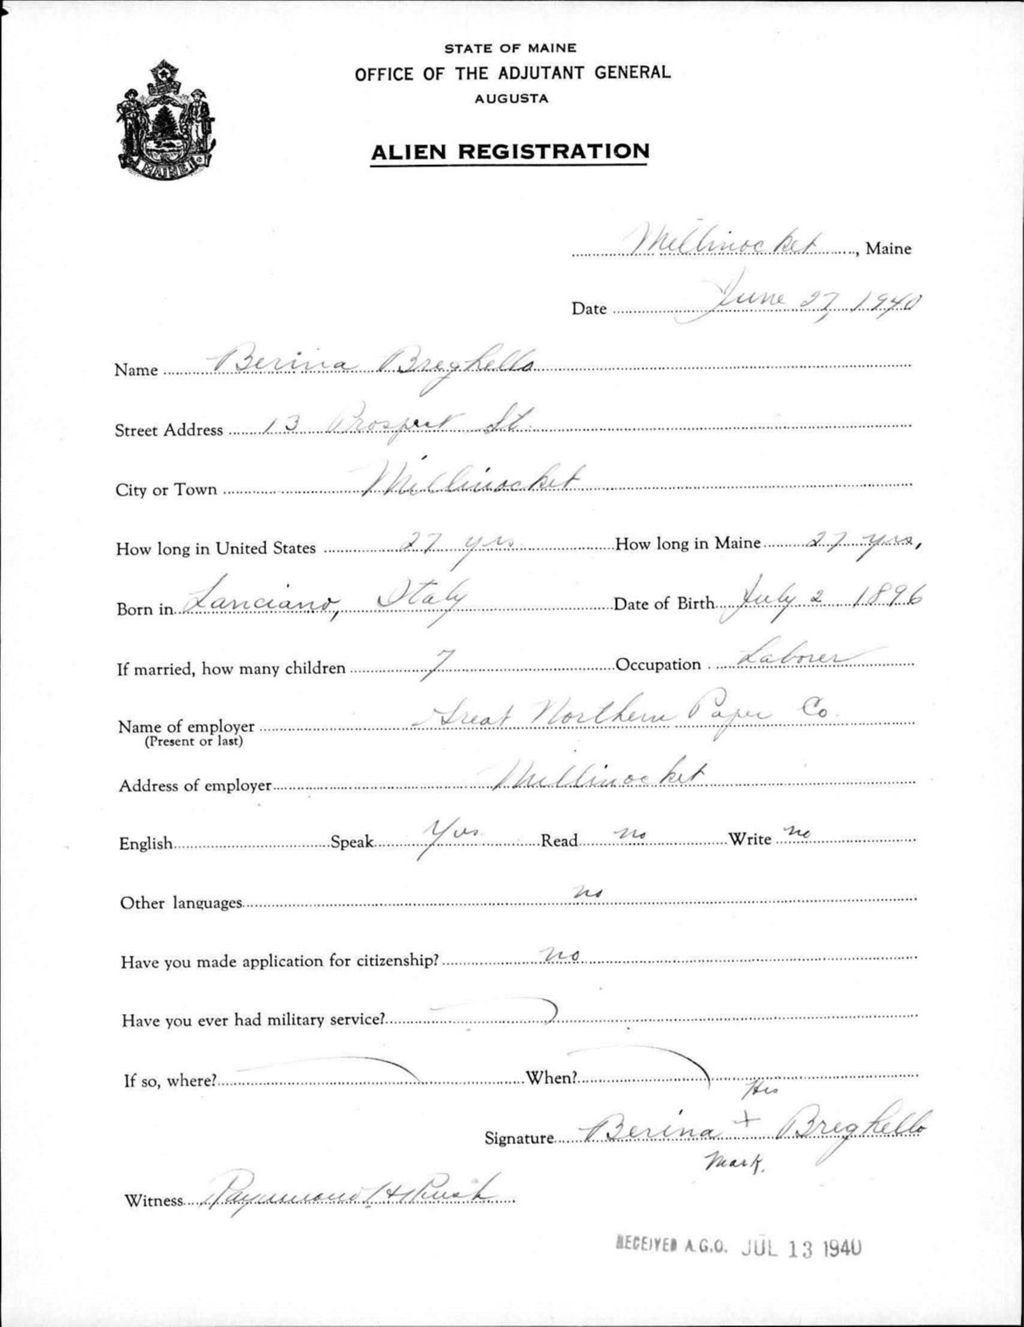 STATE OF MAINE
OFFICE OF THE ADJUTANT GENERAL
AUGUSTA
ALIEN REGISTRATION
MAINE
Millinocket, Maine
Date June 27, 1940
Name Berina Breghello
Street Address 13 Prospect St.
City or Town Millinocket
How long in United States 27 yrs How long in Maine 27 yrs,
Born in Lanciano, Italy Date of Birth July 2 1896
If married, how many children 7 Occupation Laborer
Name of employer Great Northern Paper Co.
(Present or last)
Address of employer Millinocket
English Speak Yes Read no Write no
Other languages no
Have you made application for citizenship? no
Have you ever had military service?
If so, where? When?
His
Signature Berina + Breghello
Mark.
Witness Raymond H Rush
RECEIVED A.G.O. JUL 13 1940